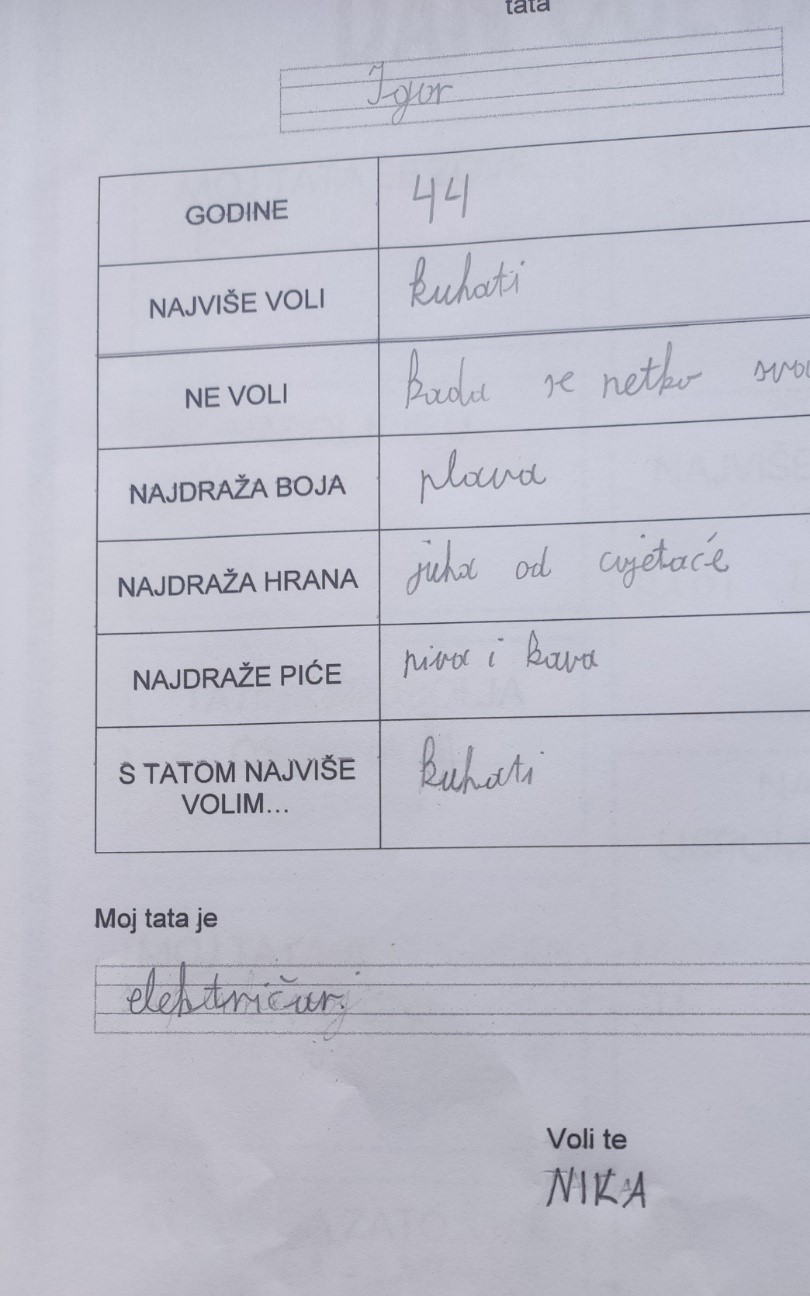 tata
Igor
GODINE 44
NAJVIŠE VOLI kuhati
NE VOLI kada se netko
NAJDRAŽA BOJA plava
NAJDRAŽA HRANA juha od cvjetaće
NAJDRAŽE PIĆE piva i kava
S TATOM NAJVIŠE
VOLIM... kuhati
Moj tata je
električar.
Voli te
NIKA